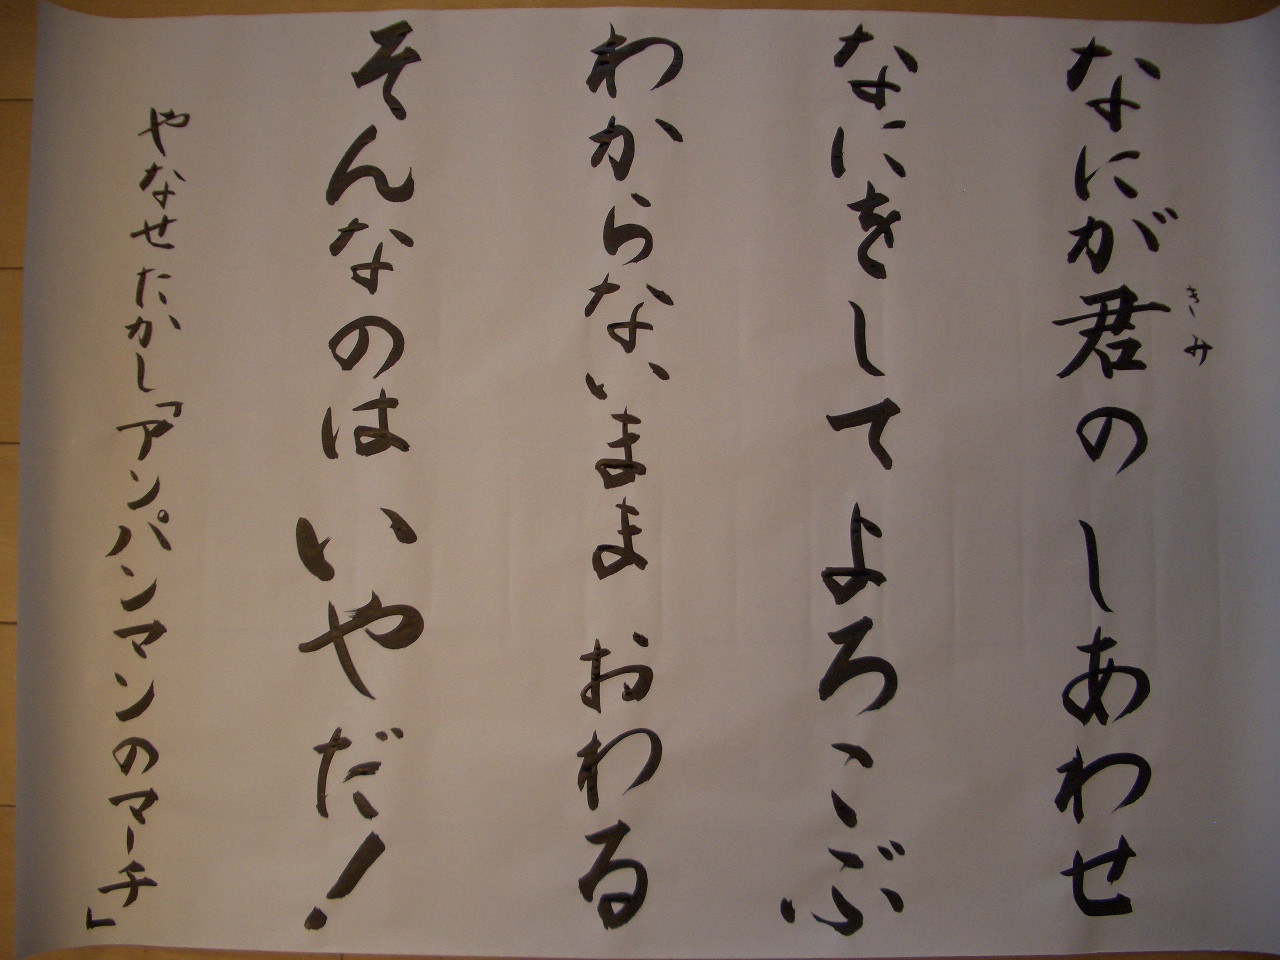 なにが君のしあわせ
きみ
なにをしてよろこぶ
わからないまま おわる
そんなのはいやだ!
やなせたかし「アンパンマンのマーチ」